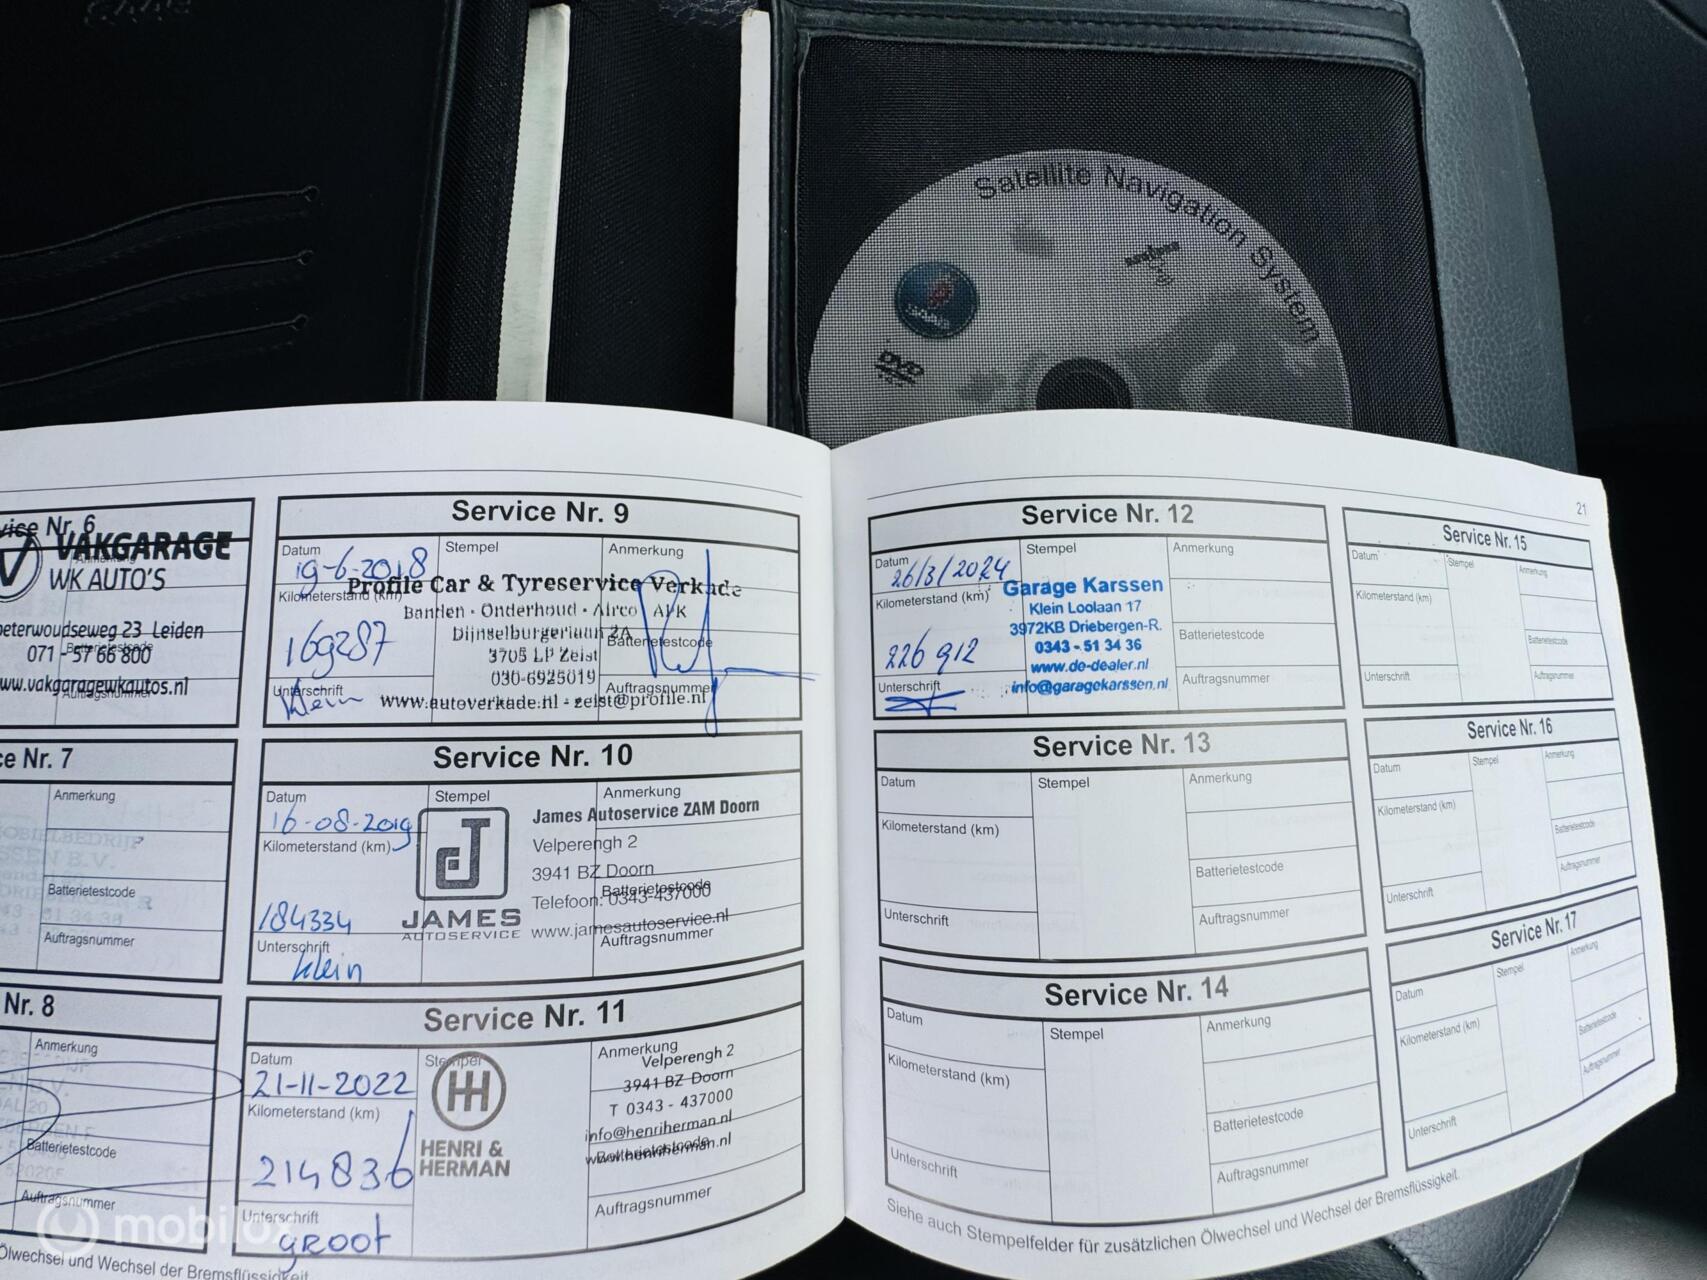 Satellite Navigation System
SAAB
DVD
Service Nr. 6
VAKGARAGE
WK AUTO'S
Anmerkung
peterwoudseweg 23 Leiden
071 - 57 66 800
Batterietestcode
www.vakgaragewkautos.nl
Auftragsnummer
Nr. 7
Anmerkung
Batterietestcode
Auftragsnummer
Nr. 8
Anmerkung
Batterietestcode
Auftragsnummer
Ölwechsel und Wechsel der Bremsflüssigkeit.
Service Nr. 9
Datum
19-6-2018
Stempel
Anmerkung
Kilometerstand (km)
169287
Profile Car & Tyreservice Verkade
Banden · Onderhoud · Airco · APK
Dijnselburgerlaan 2A
Batterietestcode
3705 LP Zeist
030-6925019
Unterschrift
Klein
Auftragsnummer
www.autoverkade.nl - zeist@profile.nl
Service Nr. 10
Datum
16-08-2019
Stempel
Anmerkung
Kilometerstand (km)
184334
James Autoservice ZAM Doorn
Velperengh 2
3941 BZ Doorn
Batterietestcode
Telefoon: 0343-437000
www.jamesautoservice.nl
JAMES
AUTOSERVICE
Unterschrift
Klein
Auftragsnummer
Service Nr. 11
Datum
21-11-2022
Stempel
Anmerkung
Kilometerstand (km)
214836
HENRI &
HERMAN
Velperengh 2
3941 BZ Doorn
T 0343 - 437000
info@henriherman.nl
www.henriherman.nl
Batterietestcode
Unterschrift
GROOT
Auftragsnummer
21
Service Nr. 12
Datum
26/3/2024
Stempel
Anmerkung
Kilometerstand (km)
226 912
Garage Karssen
Klein Loolaan 17
3972KB Driebergen-R.
0343 - 51 34 36
www.de-dealer.nl
info@garagekarssen.nl
Batterietestcode
Unterschrift
Auftragsnummer
Service Nr. 13
Datum
Stempel
Anmerkung
Kilometerstand (km)
Batterietestcode
Unterschrift
Auftragsnummer
Service Nr. 14
Datum
Stempel
Anmerkung
Kilometerstand (km)
Batterietestcode
Unterschrift
Auftragsnummer
Service Nr. 15
Datum
Stempel
Anmerkung
Kilometerstand (km)
Batterietestcode
Unterschrift
Auftragsnummer
Service Nr. 16
Datum
Stempel
Anmerkung
Kilometerstand (km)
Batterietestcode
Unterschrift
Auftragsnummer
Service Nr. 17
Datum
Stempel
Anmerkung
Kilometerstand (km)
Batterietestcode
Unterschrift
Auftragsnummer
Siehe auch Stempelfelder für zusätzlichen Ölwechsel und Wechsel der Bremsflüssigkeit.
mobilox